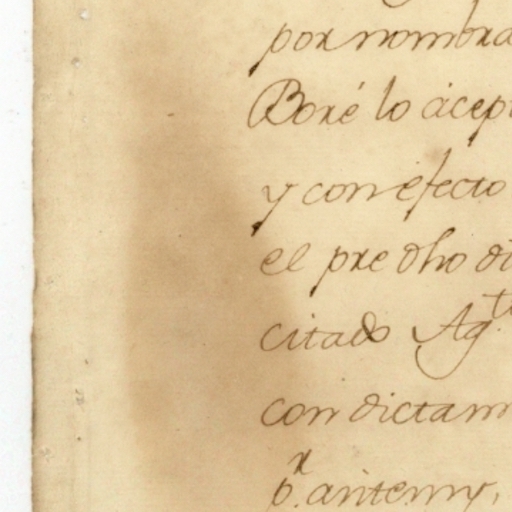 por nombra
Boré lo acep
y con efecto
el pre dho di
citado Agto
con dictam
pr. antemy,